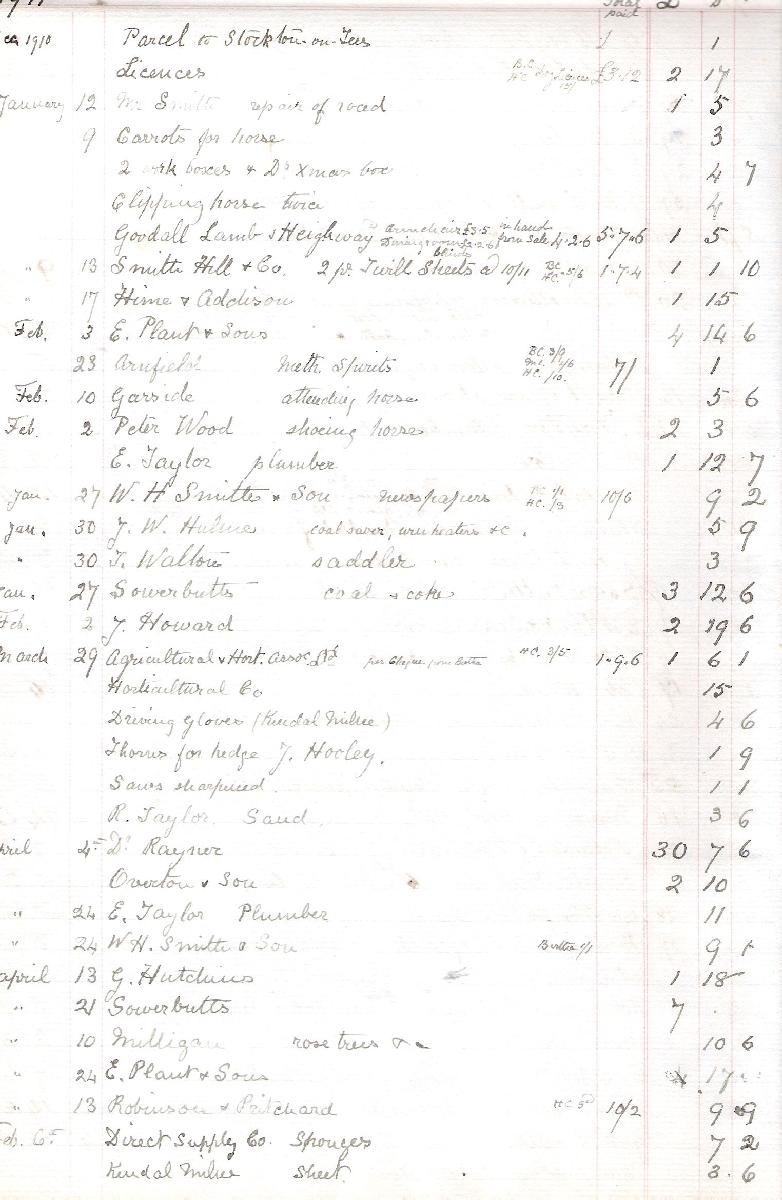 Total paid £
ca 1910 Parcel to Stockton-on-Tees 1
Licences £3.12 2 17
January 12 Mr Smith repair of road 1 5
9 Carrots for horse 3
2 work boxes & Dr Xmas box 4 7
Clipping horse twice 4
Goodall Lamb & Heighway armchair £3.5 in hand from sale 4.2.6 5.7.6 1 5
Diningroom £2.2.6 blinds
" 13 Smith Hill & Co. 2 pr Twill Sheets @ 10/11 BC HC. 5/6 1.7.4 1 1 10
" 17 Hime & Addison 1 15
Feb. 3 E. Plant & Sons 4 14 6
23 Arnfield Meth. Spirits BC. 3/9 HC. /10. 7/ 1
Feb. 10 Garside attending horse 5 6
Feb. 2 Peter Wood shoeing horse 2 3
E. Taylor plumber 1 12 7
Jan. 27 W. H Smith & Son newspapers BC 1/1 HC. /3 10/6 9 2
Jan. 30 J. W. Hulme coal saver, urn heaters &c. 5 9
" 30 T. Walton saddler 3
an. 27 Sowerbutts coal & coke 3 12 6
Feb. 2 J. Howard 2 19 6
march 29 Agricultural & Hort. Assoc. Ltd HC. 3/5 1.9.6 1 6 1
Horticultural Co 15
Driving gloves (Kendal Milne) 4 6
Thorns for hedge J. Hocley. 1 9
Saws sharpened 1 1
R. Taylor. Sand. 3 6
pril 4th Dr Rayner 30 7 6
Overton & Son 2 10
" 24 E. Taylor Plumber 11
" 24 W.H. Smith & Son Bertha 1/1 9 1
april 13 G. Hutchins 1 18
" 21 Sowerbutts 7
" 10 Milligan rose trees &c 10 6
" 24 E. Plant & Sons 17
" 13 Robinson & Pritchard HC 5d 10/2 9 9
Feb. 6th Direct Supply Co. Sponges 7 2
Kendal Milne Sheet. 3. 6